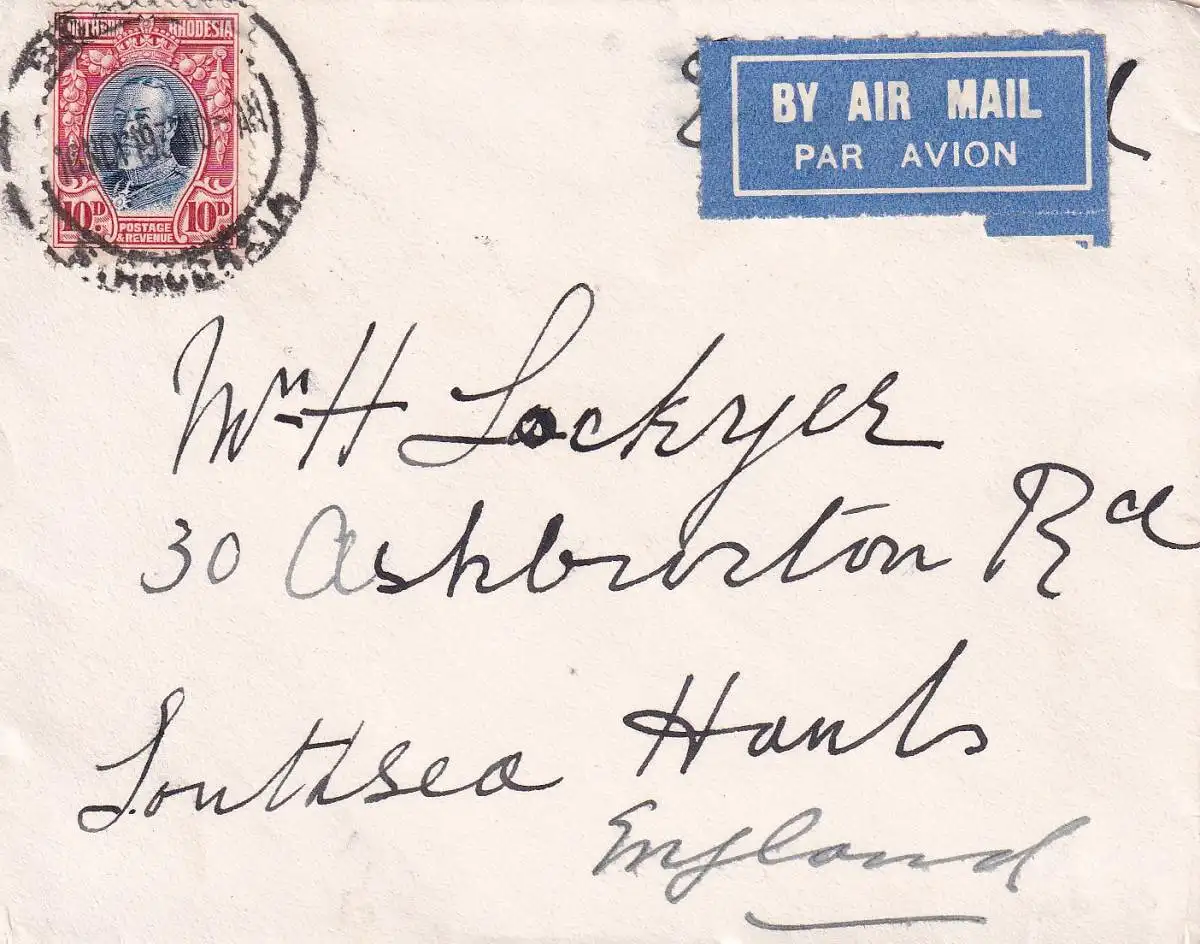 SOUTHERN RHODESIA
10D POSTAGE & REVENUE 10D
RHODESIA
BY AIR MAIL
PAR AVION
H Lockyer
30 Ashburton Rd
Southsea Hants
England